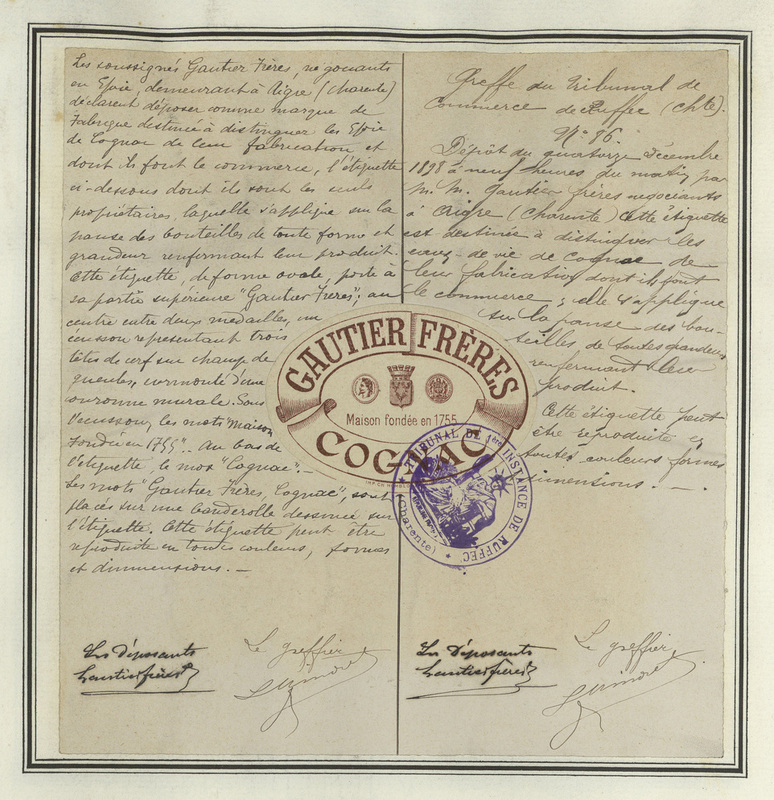 Les soussignés Gautier Frères, négociants
en Epie, demeurant à Aigre (Charente)
déclarent déposer comme marque de
Fabrique destinée à distinguer les Epie
de Cognac de leur fabrication et
dont ils font le commerce, l'étiquette
ci-dessous dont ils sont les seuls
propriétaires, laquelle s'applique sur la
panse des bouteilles de toute forme et
grandeur renfermant leur produit.
Cette étiquette, de forme ovale, porte à
sa partie supérieure "Gautier Frères"; au
centre entre deux médailles, un
écusson représentant trois
têtes de cerf sur champ de
gueules, surmonté d'une
couronne murale. Sous
l'écusson, les mots "Maison
Fondée en 1755". Au bas de
l'étiquette, le mot "Cognac". —
Les mots "Gautier Frères, Cognac", sont
placés sur une banderolle dessinée sur
l'étiquette. Cette étiquette peut être
reproduite en toutes couleurs, formes
et dimmensions. —
Les Déposants
Gautier frères
Le greffier
Greffe du Tribunal de
Commerce de Ruffec (Chte).
N° 86.
Dépôt du quatorze Décembre
1898 à neuf heures du matin par
M. M. Gautier frères négociants
à Aigre (Charente) Cette étiquette
est destinée à distinguer les
eaux-de-vie de Cognac de
leur fabrication dont ils font
le commerce ; elle s'applique
sur la panse des bou-
teilles de toutes grandeurs
renfermant leur
produit.
Cette étiquette peut
être reproduite en
toutes couleurs formes
dimensions. —
Les Déposants
Gautier frères
Le greffier
GAUTIER FRÈRES
Maison fondée en 1755
COGNAC
TRIBUNAL DE 1ère INSTANCE DE RUFFEC
(Charente)